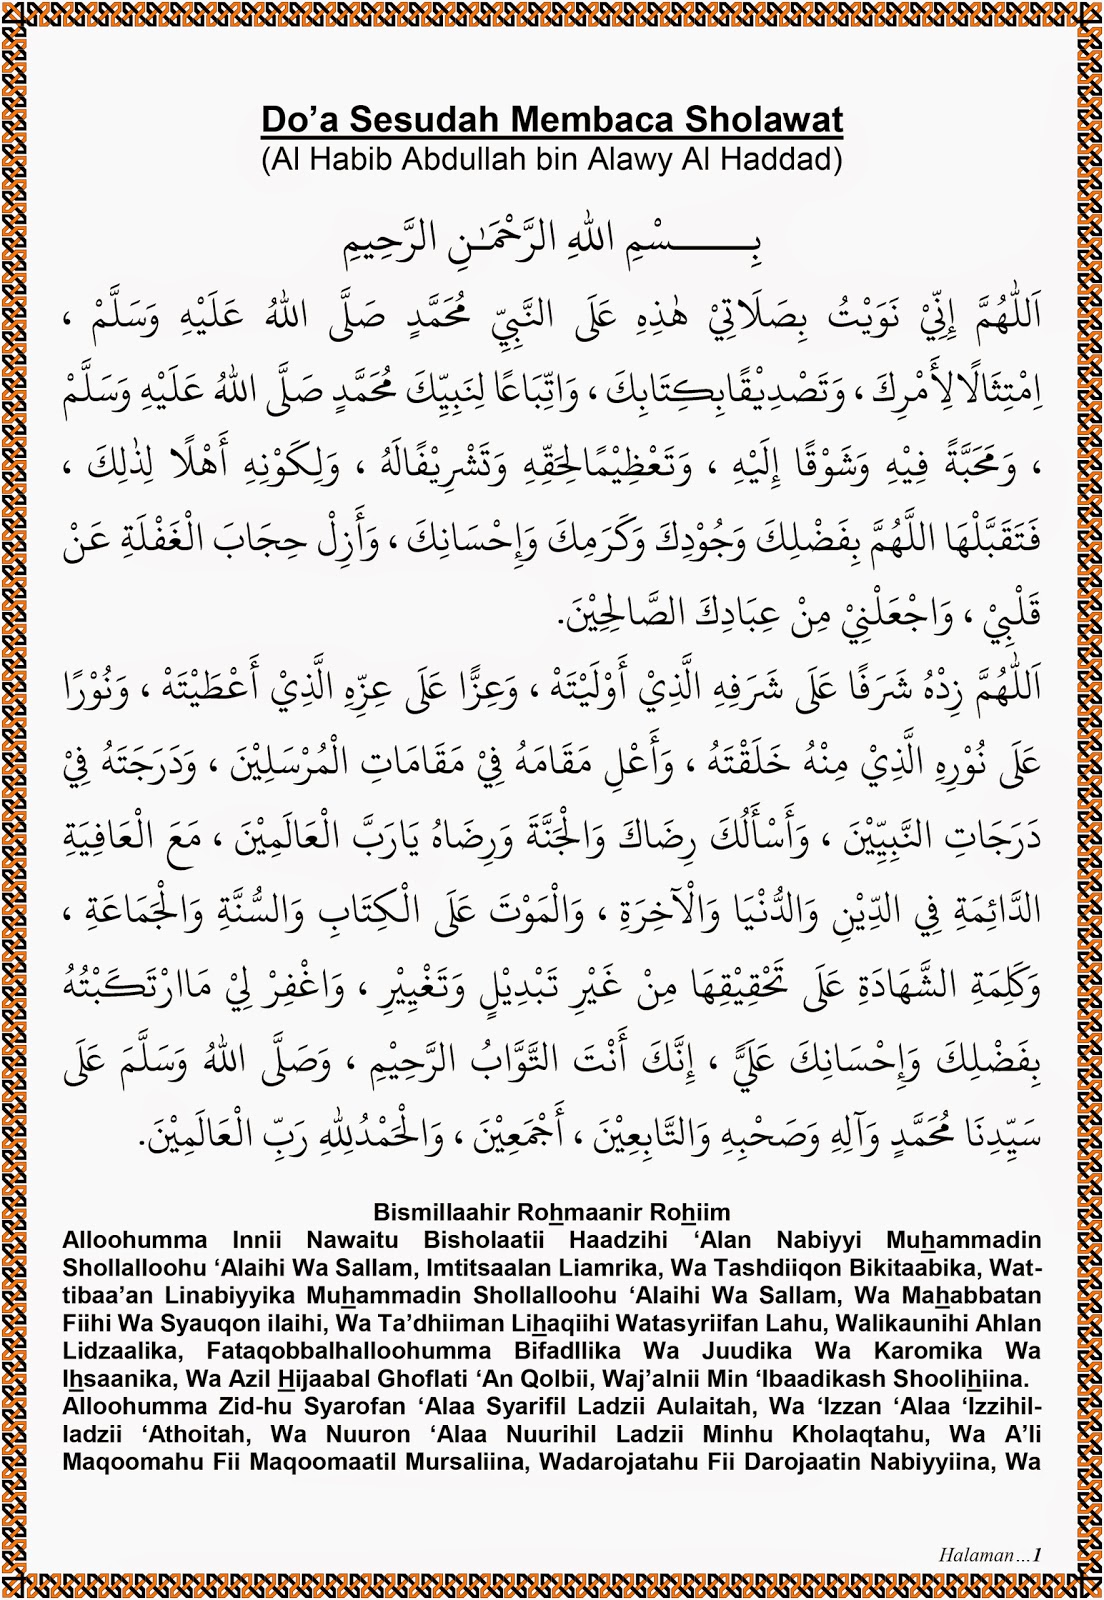 Do’a Sesudah Membaca Sholawat
(Al Habib Abdullah bin Alawy Al Haddad)
بِـــــــسْمِ اللهِ الرَّحْمَـٰنِ الرَّحِيمِ
اَللّٰهُمَّ إِنِّيْ نَوَيْتُ بِصَلَاتِيْ هٰذِهِ عَلَى النَّبِيِّ مُحَمَّدٍ صَلَّى اللهُ عَلَيْهِ وَسَلَّمْ ،
اِمْتِثَالًالِأَمْرِكَ ، وَتَصْدِيْقًابِكِتَابِكَ ، وَاتِّبَاعًا لِنَبِيِّكَ مُحَمَّدٍ صَلَّى اللهُ عَلَيْهِ وَسَلَّمْ
، وَمَحَبَّةً فِيْهِ وَشَوْقًا إِلَيْهِ ، وَتَعْظِيْمًالِحَقِّهِ وَتَشْرِيْفًالَهُ ، وَلِكَوْنِهِ أَهْلًا لِذٰلِكَ ،
فَتَقَبَّلْهَا اللَّهُمَّ بِفَضْلِكَ وَجُوْدِكَ وَكَرَمِكَ وَإِحْسَانِكَ ، وَأَزِلْ حِجَابَ الْغَفْلَةِ عَنْ
قَلْبِيْ ، وَاجْعَلْنِيْ مِنْ عِبَادِكَ الصَّالِحِيْنَ.
اَللّٰهُمَّ زِدْهُ شَرَفًا عَلَى شَرَفِهِ الَّذِيْ أَوْلَيْتَهْ ، وَعِزًّا عَلَى عِزِّهِ الَّذِيْ أَعْطَيْتَهْ ، وَنُوْرًا
عَلَى نُوْرِهِ الَّذِيْ مِنْهُ خَلَقْتَهُ ، وَأَعْلِ مَقَامَهُ فِيْ مَقَامَاتِ الْمُرْسَلِيْنَ ، وَدَرَجَتَهُ فِيْ
دَرَجَاتِ النَّبِيِّيْنَ ، وَأَسْأَلُكَ رِضَاكَ وَالْجَنَّةَ وَرِضَاهُ يَارَبَّ الْعَالَمِيْنَ ، مَعَ الْعَافِيَةِ
الدَّائِمَةِ فِي الدِّيْنِ وَالدُّنْيَا وَالْآخِرَةِ ، وَالْمَوْتَ عَلَى الْكِتَابِ وَالسُّنَّةِ وَالْجَمَاعَةِ ،
وَكَلِمَةِ الشَّهَادَةِ عَلَى تَحْقِيْقِهَا مِنْ غَيْرِ تَبْدِيْلٍ وَتَغْيِيْرِ ، وَاغْفِرْ لِيْ مَاارْتَكَبْتُهُ
بِفَضْلِكَ وَإِحْسَانِكَ عَلَيَّ ، إِنَّكَ أَنْتَ التَّوَّابُ الرَّحِيْمِ ، وَصَلَّى اللهُ وَسَلَّمَ عَلَى
سَيِّدِنَا مُحَمَّدٍ وَآلِهِ وَصَحْبِهِ وَالتَّابِعِيْنَ ، أَجْمَعِيْنَ ، وَالْحَمْدُلِلّٰهِ رَبِّ الْعَالَمِيْنَ.
Bismillaahir Rohmaanir Rohiim
Alloohumma Innii Nawaitu Bisholaatii Haadzihi ‘Alan Nabiyyi Muhammadin
Shollalloohu ‘Alaihi Wa Sallam, Imtitsaalan Liamrika, Wa Tashdiiqon Bikitaabika, Wat-
tibaa’an Linabiyyika Muhammadin Shollalloohu ‘Alaihi Wa Sallam, Wa Mahabbatan
Fiihi Wa Syauqon ilaihi, Wa Ta’dhiiman Lihaqiihi Watasyriifan Lahu, Walikaunihi Ahlan
Lidzaalika, Fataqobbalhalloohumma Bifadllika Wa Juudika Wa Karomika Wa
Ihsaanika, Wa Azil Hijaabal Ghoflati ‘An Qolbii, Waj’alnii Min ‘Ibaadikash Shoolihiina.
Alloohumma Zid-hu Syarofan ‘Alaa Syarifil Ladzii Aulaitah, Wa ‘Izzan ‘Alaa ‘Izzihil-
ladzii ‘Athoitah, Wa Nuuron ‘Alaa Nuurihil Ladzii Minhu Kholaqtahu, Wa A’li
Maqoomahu Fii Maqoomaatil Mursaliina, Wadarojatahu Fii Darojaatin Nabiyyiina, Wa
Halaman…1